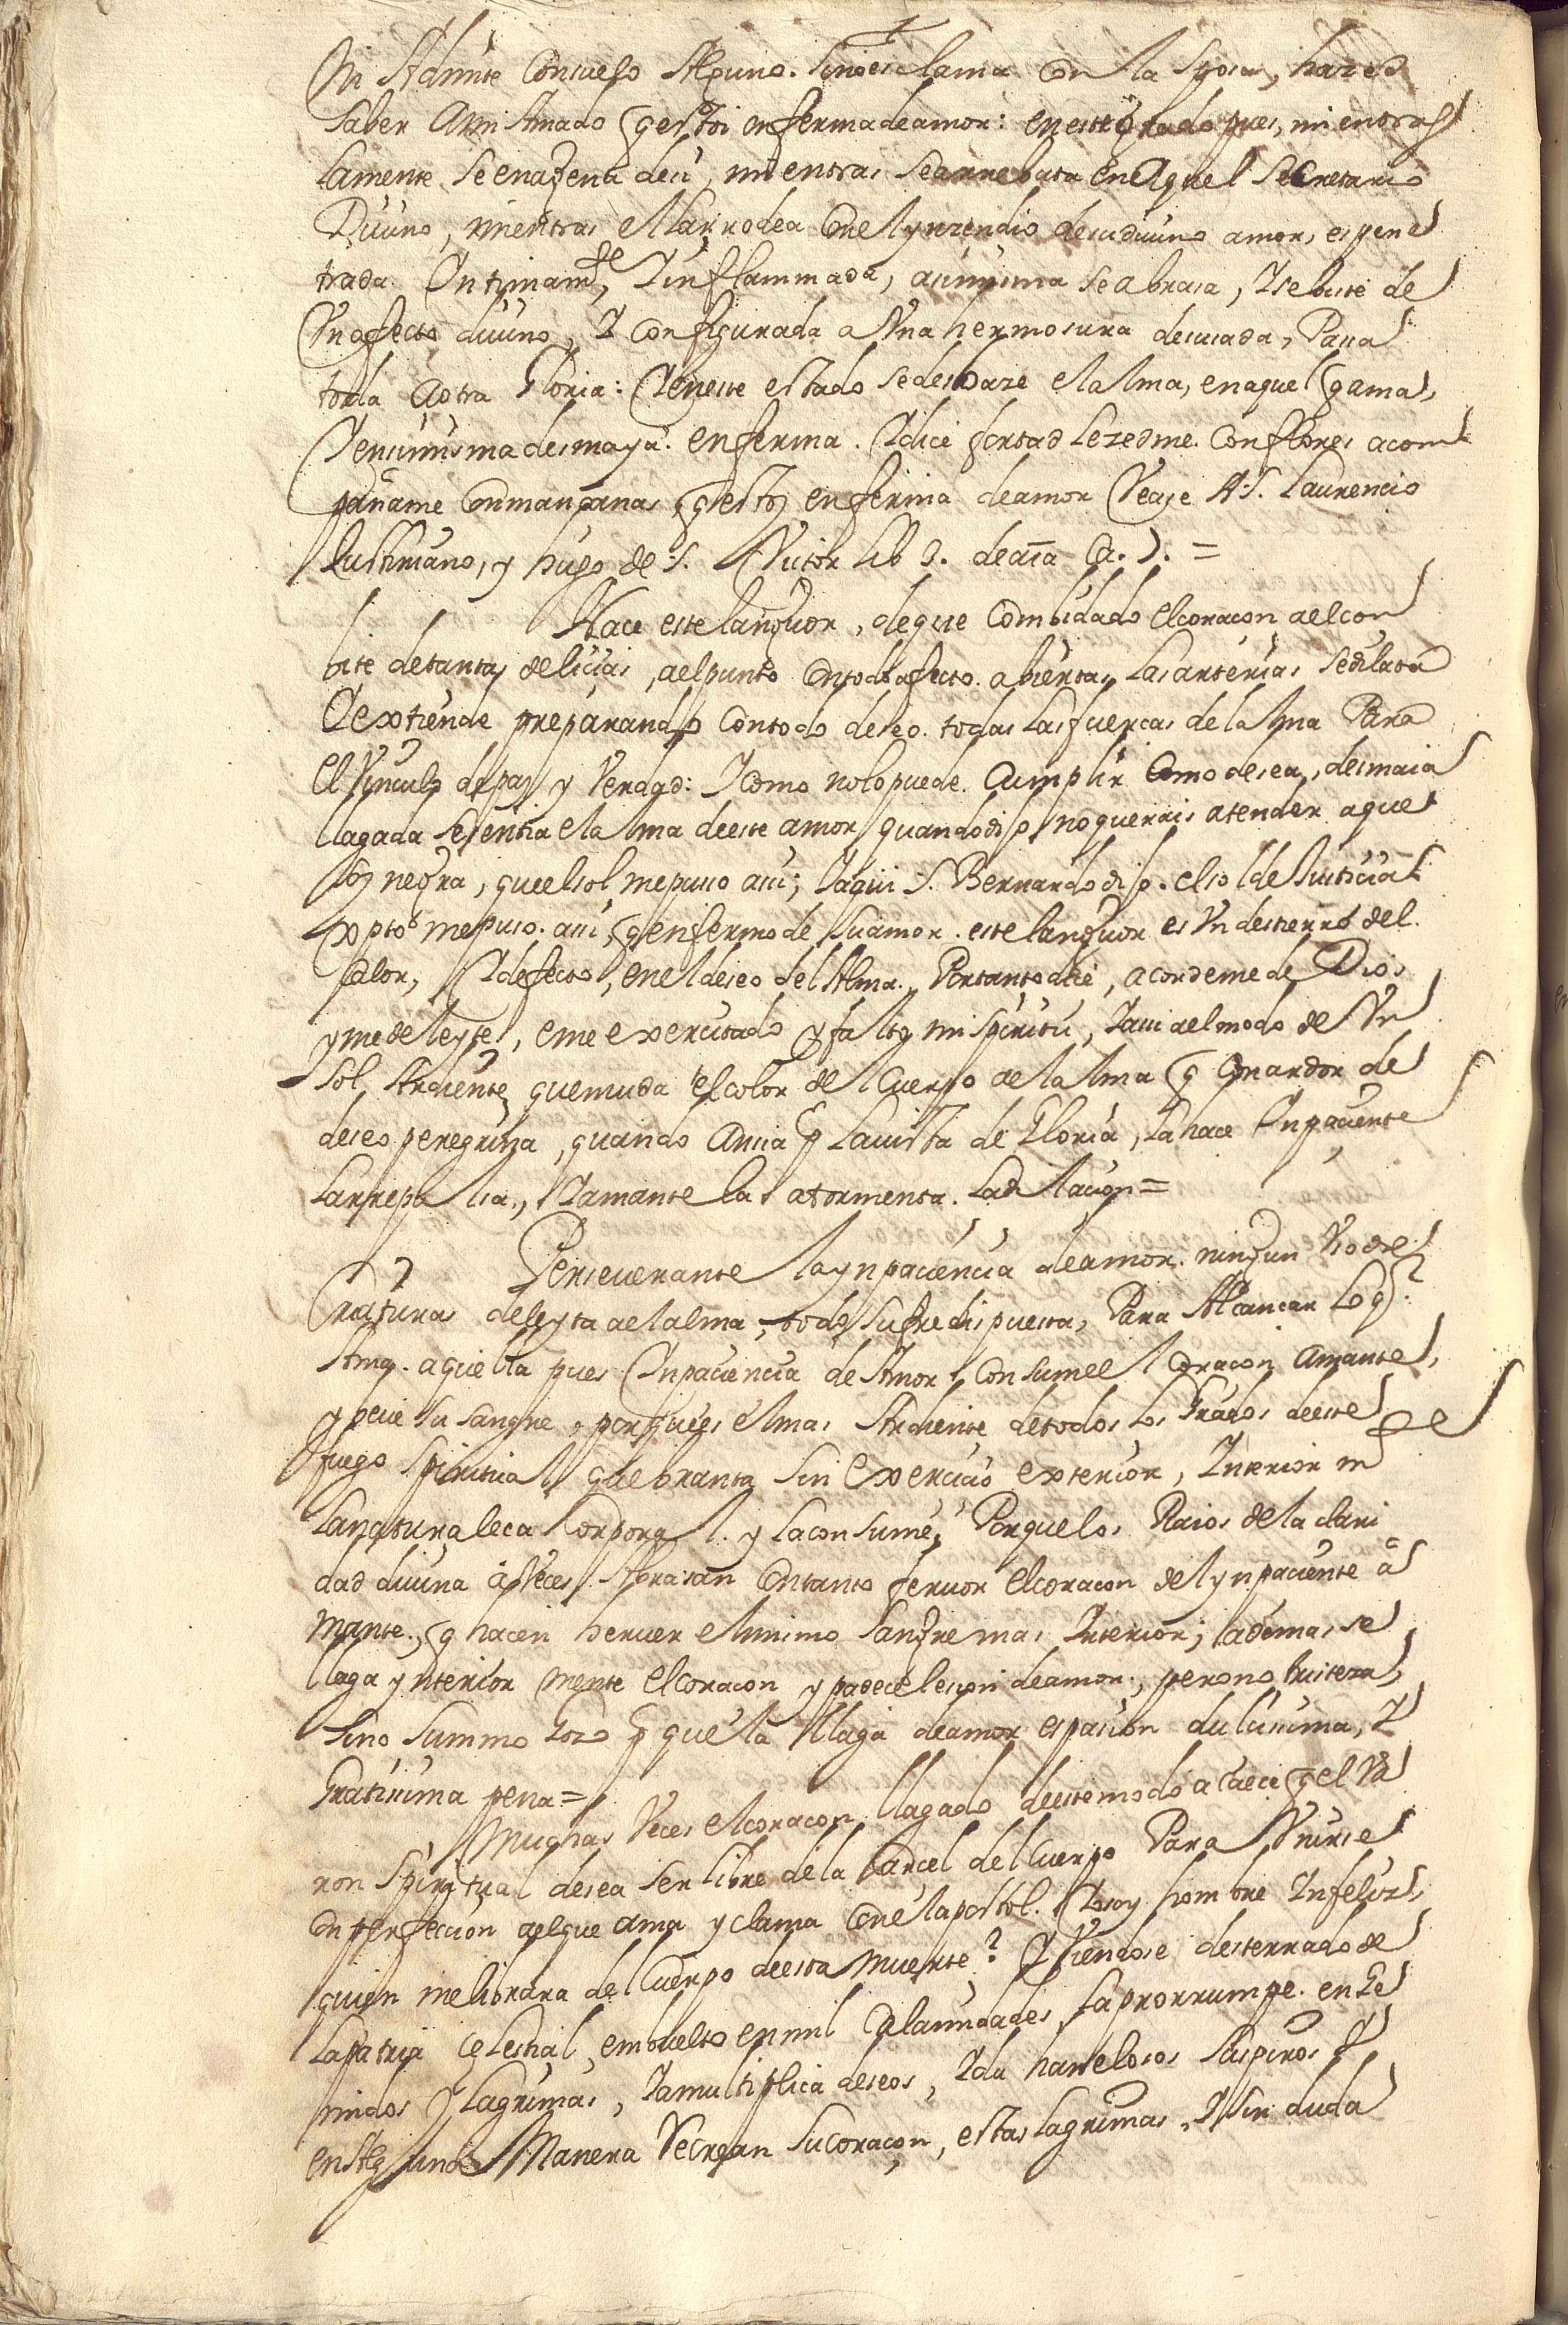 ni Admite Consuelo Alguno. sino esclama Con la Sposa, hazed
saber A mi Amado q estoi enferma de amor: en este grado pues, mientras
la mente se enagena de si, mientras se arrebata en Aquel Secretario
Diuino, mientras ella rrodea Con el ynzendio de su diuino amor, es pene
trada Yntimamte, Y inflammada, asi misma se abrasa, Y se biste de
Vn afecto diuino, Y Configurada a Vna hermosura desusada, Pasa
toda A otra Gloria: Y en este estado se deshaze el alma, en aquel q ama,
Y en si misma desmaya enferma. Y dice fortadlezedme Con flores acom
pañame Con manzanas q estoy enferma de amor Vease A S. Laurencio
Justiniano, y hugo de S. Victor lib 3. de aīa Ca.
Nace este languor, de que Combidado el coraçon a el con
bite de tantas delicias, a el punto Con todo afecto abiertas las arterias se dilata
Y extiende preparando Con todo deseo todas las fuerças de la lma Para
el Vinculo de paz y Verdad: Y Como no lo puede Cumplir Como desea, desmaia
llagada se sentia el alma de este amor quando dijo no querrais atender a que
soy negra, que el sol me puso asi; Y aqui S. Bernardo dijo. el sol de Justicia
xpto me puso asi, q enfermo de su amor. este languor es Vn destierro del
Calor, Y defecto, en el deseo del Alma. Por tanto dice, acordeme de Dios
y me deleyte, e me exercitado y falto mi spiritu, Y asi a el modo de Vn
sol Ardiente que muda el color de l Cuerpo de la lma q Con ardor de
deseo peregrina, quando Ansia p la uista de Gloria, la hace Ynpaciente
la rrepulsa, Y amante la atormenta la dilacion=
Perseuerante la ynpaciencia de amor ningun Vso de
Criaturas deleyta a el alma, todo sufre dispuesta, Para Alcançar lo q
Ama. aquella pues Ynpaciencia de Amor Consume el Coraçon Amante,
y veue su sangre, porque es el mas Ardiente de todos los Grados de este
fuego spiritual quebranta sin exercicio exterior, Interiormte
la naturaleça Corporal. y la consume, Porque los Raios de la clari
dad diuina a Veces Abrasan Con tanto feruor el coraçon de l ynpaciente a
mante., q hacen heruer el mismo sangre mas Interior; ademas se
llaga ynterior mente el coraçon y padece lesion de amor., pero no triteza,
sino summo Gozo p que la llaga de amor es pasion dulcisima, Y
Gratisima pena=
Muchas Veces el coraçon llagado de este modo acaece q el Va
ron Spiritual desea ser libre de la Carcel de l Cuerpo Para Vnirse
en perfeccion a el que ama y clama Con el apostol. Yo soy hombre Infeliz,
quien me librara de l Cuerpo de esta muerte? Y Viendose desterrado de
la patria Celestial, embuelto en mil Calamidades, ya prorrumpe en Ge
midos Y lagrimas, Y a multiplica deseos, Y da hanelosos suspiros Y
en Alguna Manera Recrean su coraçon, estas lagrimas, Y sin duda